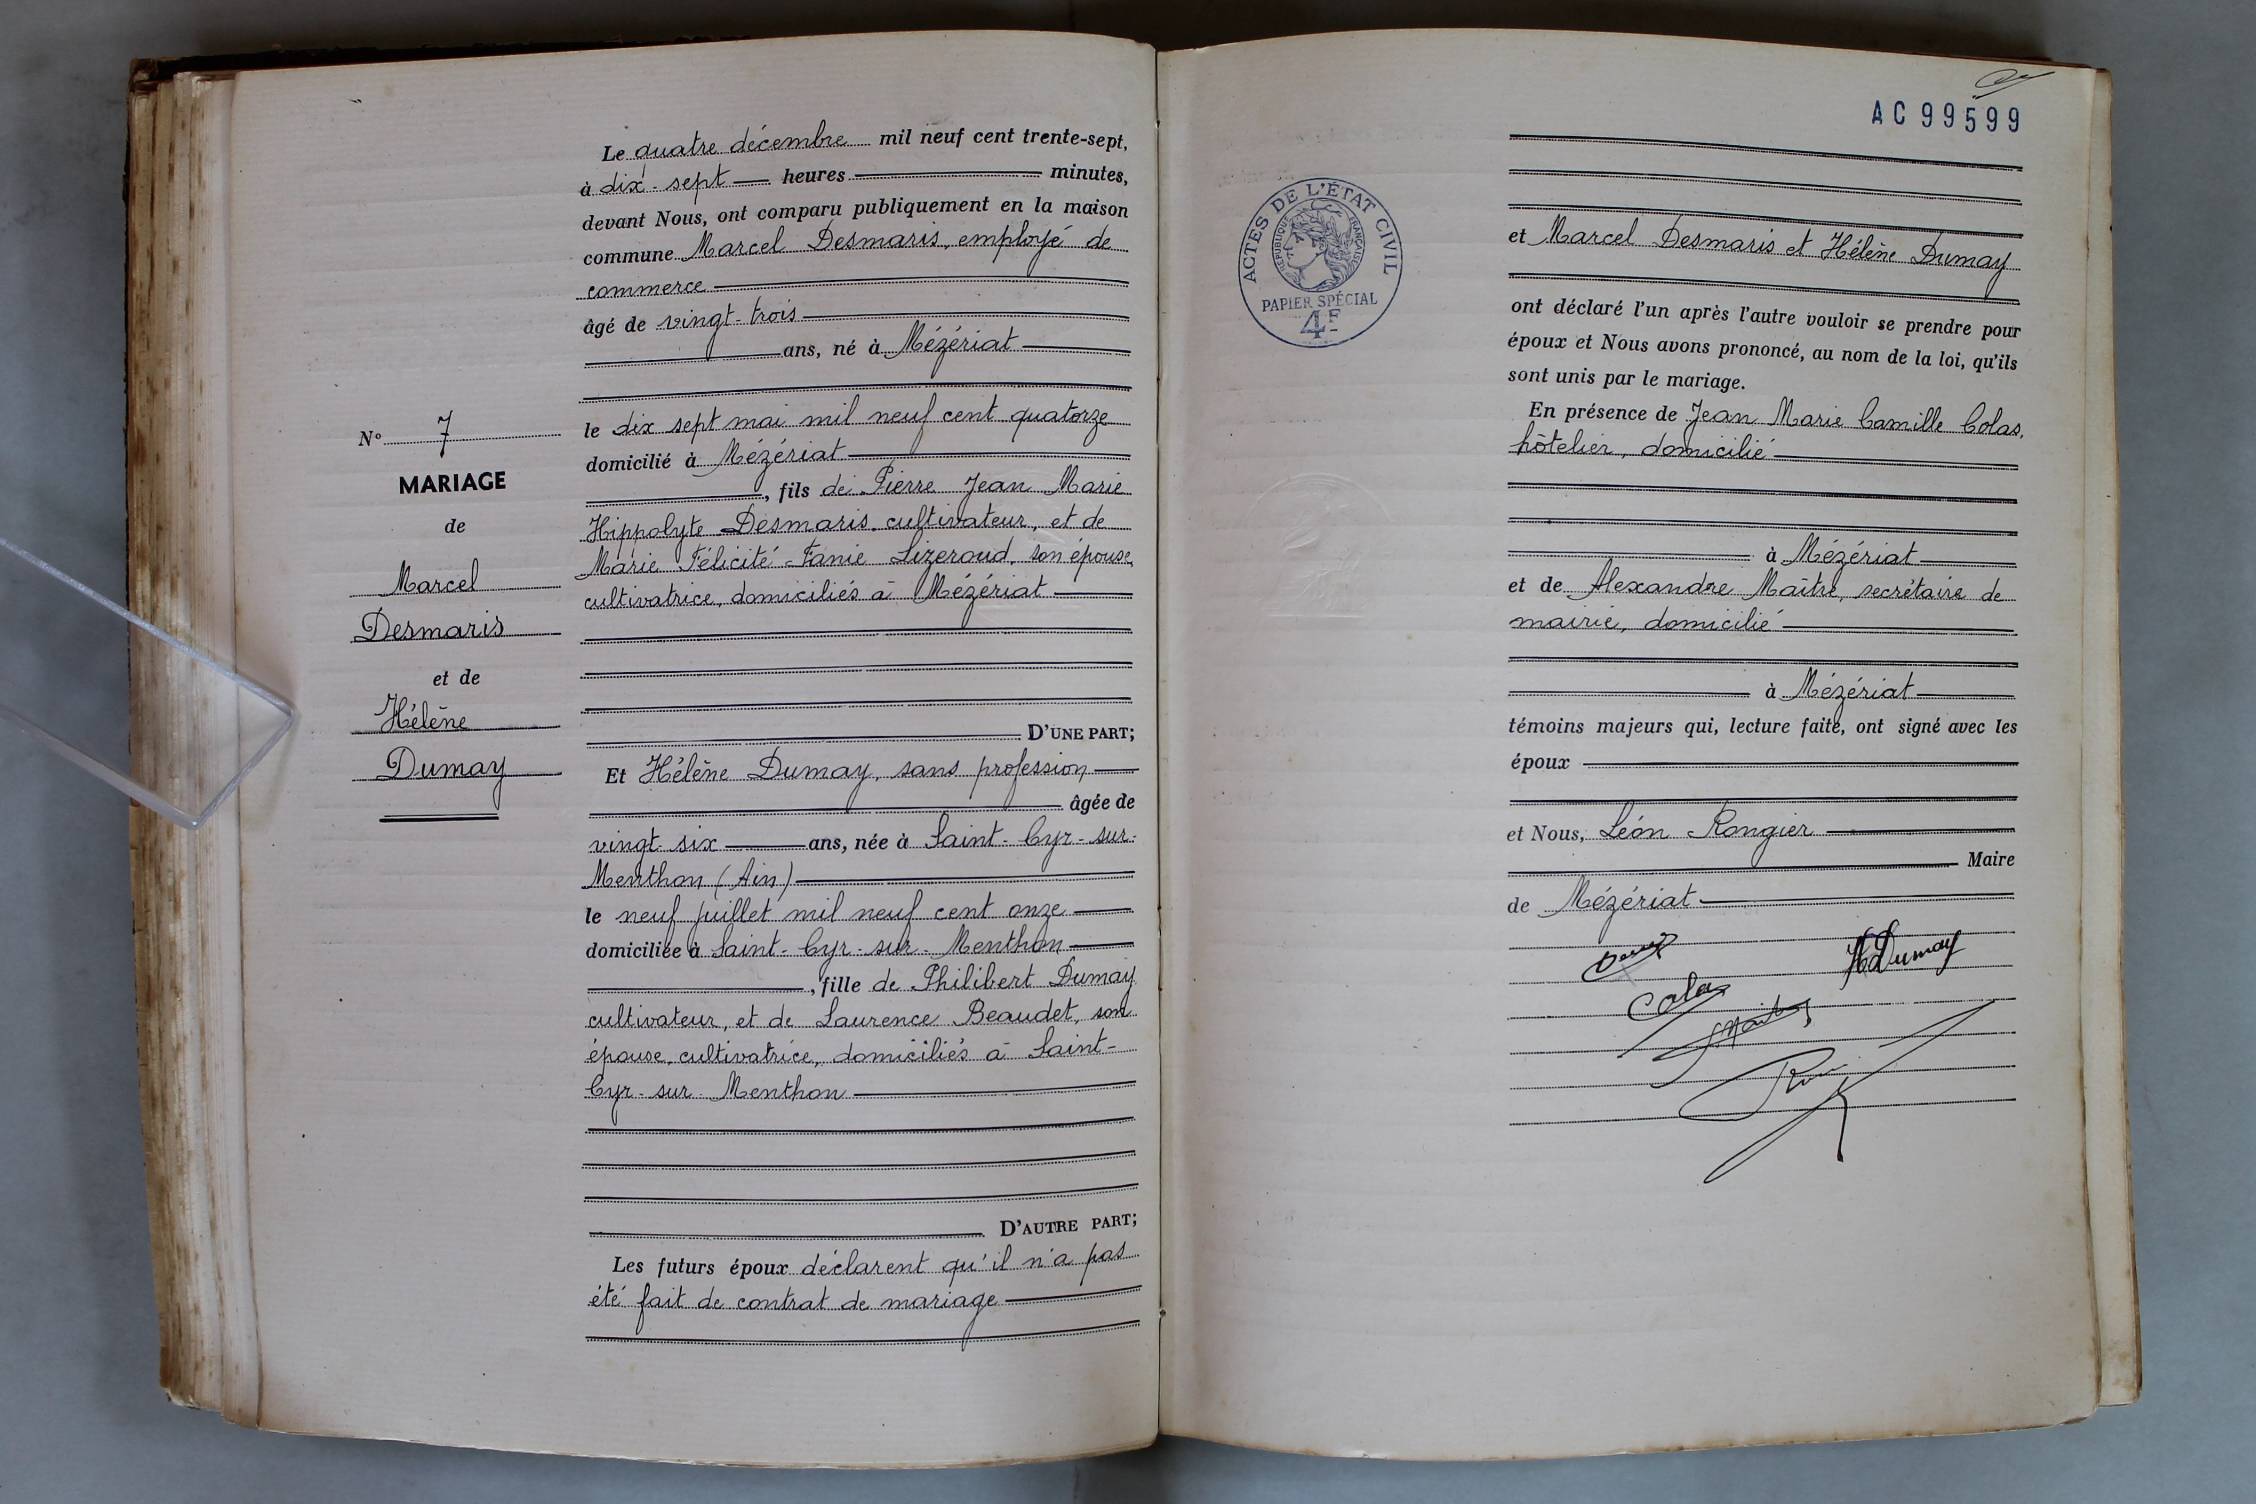 Le quatre décembre mil neuf cent trente-sept,
à dix-sept heures minutes,
devant Nous, ont comparu publiquement en la maison
commune Marcel Desmaris, employé de
commerce
âgé de vingt-trois
ans, né à Mézériat
le dix sept mai mil neuf cent quatorze
domicilié à Mézériat
, fils de Pierre Jean Marie
Hippolyte Desmaris, cultivateur, et de
Marie Félicité Fanie Lizeroud, son épouse,
cultivatrice, domiciliés à Mézériat
D'UNE PART;
Et Hélène Dumay, sans profession
âgée de
vingt-six ans, née à Saint-Cyr-sur-
Menthon (Ain)
le neuf juillet mil neuf cent onze
domiciliée à Saint-Cyr-sur-Menthon
, fille de Philibert Dumay
cultivateur, et de Laurence Beaudet, son
épouse, cultivatrice, domiciliés à Saint-
Cyr-sur-Menthon
D'AUTRE PART;
Les futurs époux déclarent qu'il n'a pas
été fait de contrat de mariage
N° 7
MARIAGE
de
Marcel
Desmaris
et de
Hélène
Dumay
AC 99599
ACTES DE L'ÉTAT CIVIL
RÉPUBLIQUE FRANÇAISE
PAPIER SPÉCIAL
4F
et Marcel Desmaris et Hélène Dumay
ont déclaré l'un après l'autre vouloir se prendre pour
époux et Nous avons prononcé, au nom de la loi, qu'ils
sont unis par le mariage.
En présence de Jean Marie Camille Colas,
hôtelier, domicilié
à Mézériat
et de Alexandre Maître, secrétaire de
mairie, domicilié
à Mézériat
témoins majeurs qui, lecture faite, ont signé avec les
époux
et Nous, Léon Rongier
Maire
de Mézériat
HDumay
Colas